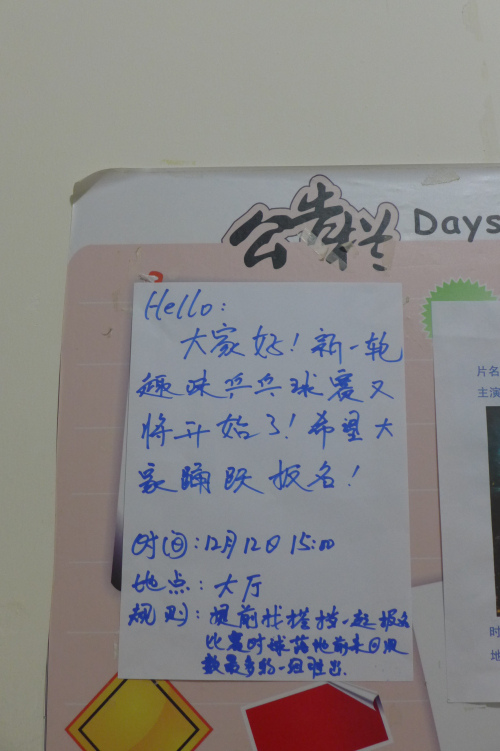 公告栏 Days
Hello:
大家好！新一轮
趣味乒乓球赛又
将开始了！希望大
家踊跃报名！
时间：12月12日 15:00
地点：大厅
规则：提前找搭档一起报名
比赛时球落地前来回次
数最多的一组胜出.
片名
主演
时
地